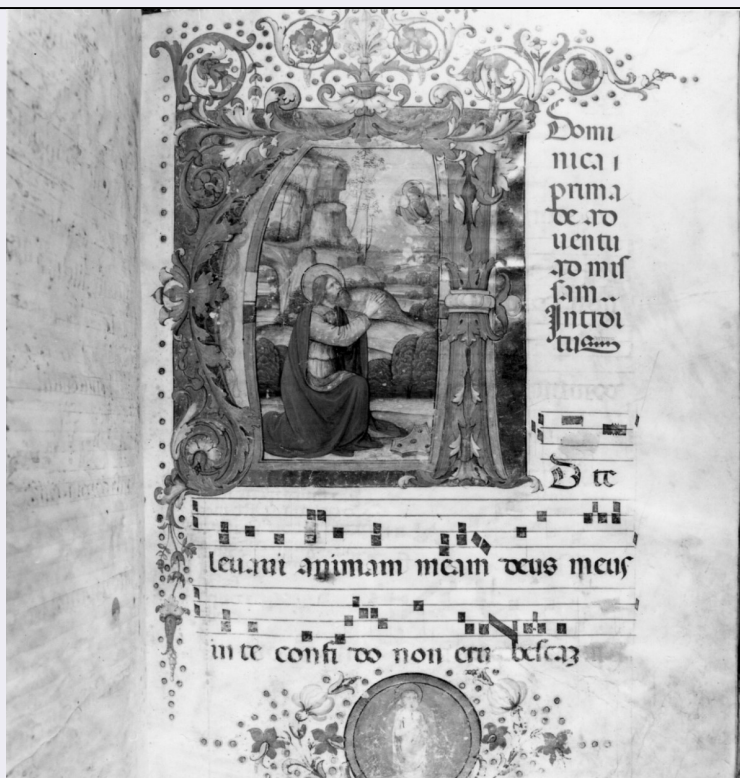 Domi
nica i
prima
de ad
uentu
ad mis
sam..
Introi
tus
A
D te
leuaui animam meam deus meus
in te confi do non eru bescaʒ